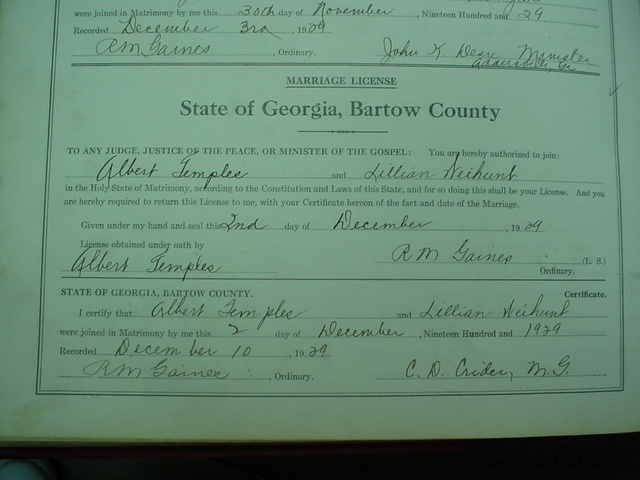 were joined in Matrimony by me this 30th day of November, Nineteen Hundred and 29
Recorded December 3rd, 1929
R M Gaines, Ordinary. John K Dean Minister
Adairsville, Ga
MARRIAGE LICENSE
State of Georgia, Bartow County
TO ANY JUDGE, JUSTICE OF THE PEACE, OR MINISTER OF THE GOSPEL: You are hereby authorized to join:
Albert Temples and Lillian Weihunt
in the Holy State of Matrimony, according to the Constitution and Laws of this State, and for so doing this shall be your License. And you
are hereby required to return this License to me, with your Certificate hereon of the fact and date of the Marriage.
Given under my hand and seal this 2nd day of December, 1929
License obtained under oath by
Albert Temples R M Gaines (L. S.)
Ordinary.
STATE OF GEORGIA, BARTOW COUNTY. Certificate.
I certify that Albert Temples and Lillian Weihunt
were joined in Matrimony by me this 2 day of December, Nineteen Hundred and 1929
Recorded December 10, 1929
R M Gaines, Ordinary. C. D. Crider, M.G.